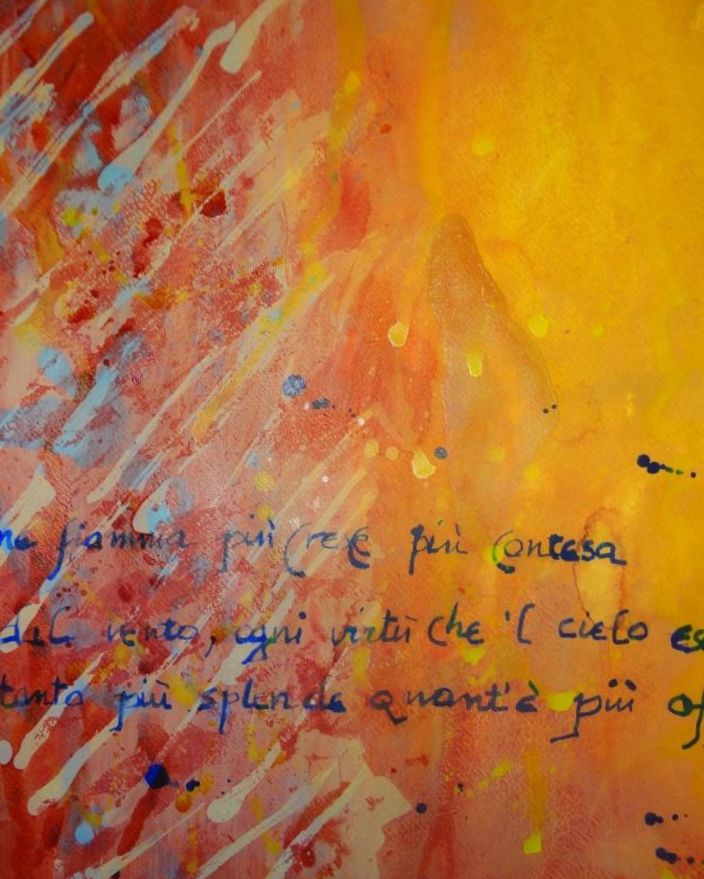 me fiamma più crese più contesa
dal vento, ogni virtù che 'l cielo es
tanto più splende quant'è più of